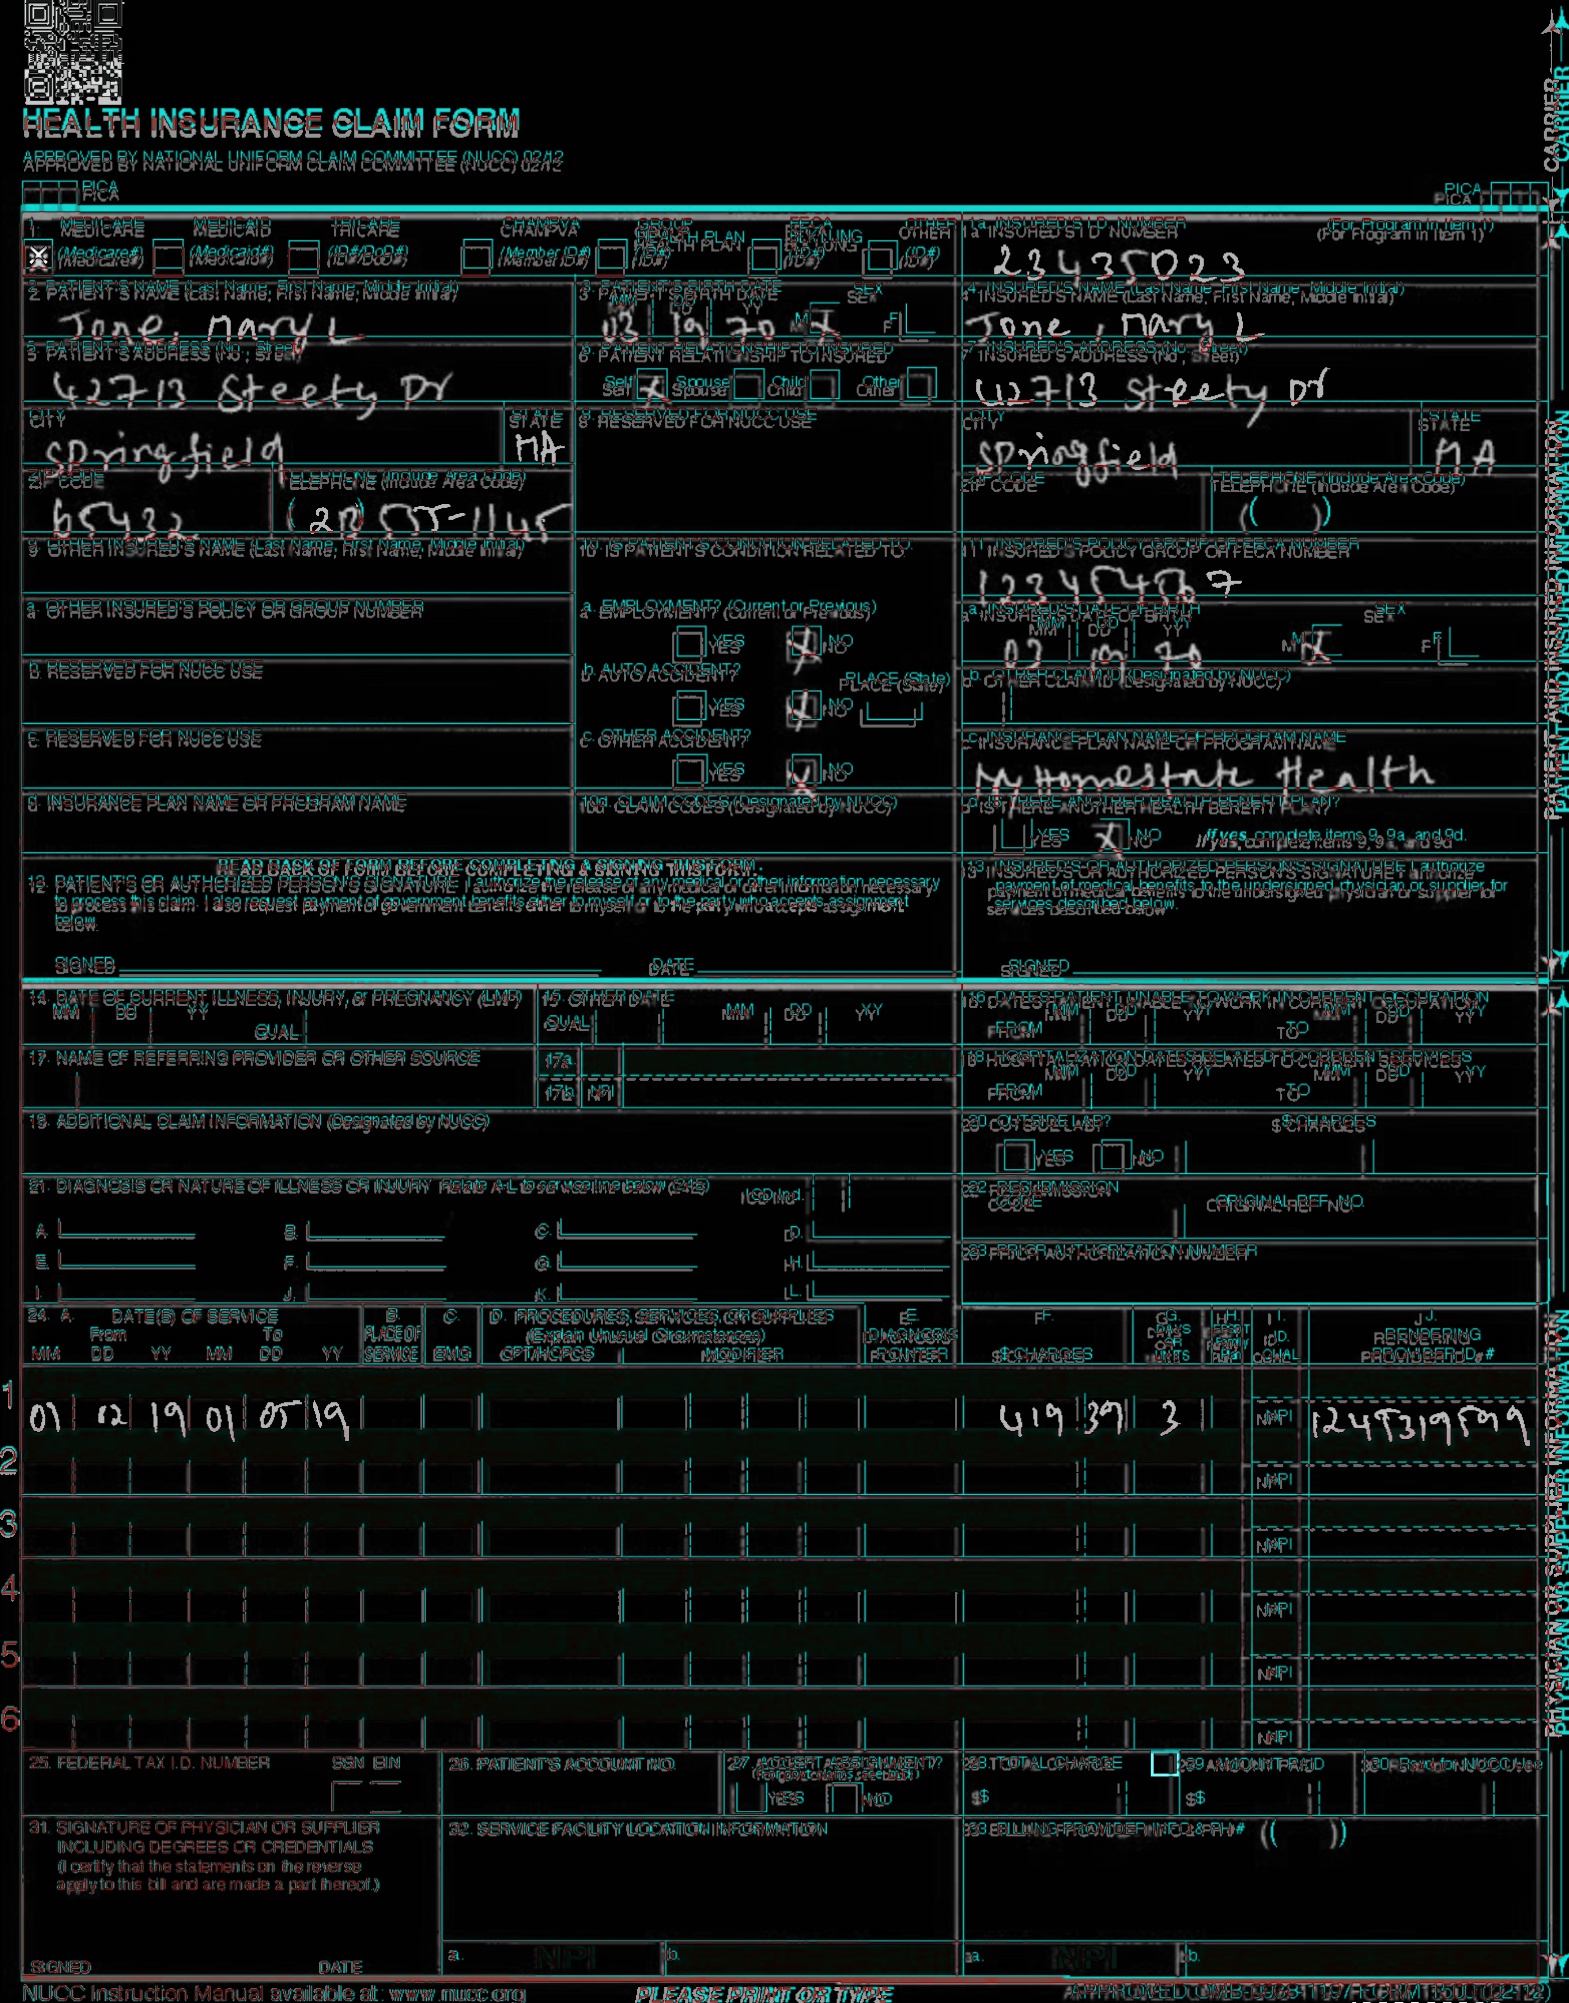 HEALTH INSURANCE CLAIM FORM
APPROVED BY NATIONAL UNIFORM CLAIM COMMITTEE (NUCC) 02/12
PICA
PICA
CARRIER
1. MEDICARE MEDICAID TRICARE CHAMPVA GROUP HEALTH PLAN FECA BLK LUNG OTHER
(Medicare#) (Medicaid#) (ID#/DoD#) (Member ID#) (ID#) (ID#) (ID#)
1a. INSURED'S I.D. NUMBER (For Program in Item 1)
23435023
2. PATIENT'S NAME (Last Name, First Name, Middle Initial)
Jone, Mary L
3. PATIENT'S BIRTH DATE SEX
MM DD YY
03 19 70 M X F
4. INSURED'S NAME (Last Name, First Name, Middle Initial)
Jone, Mary L
5. PATIENT'S ADDRESS (No., Street)
42713 Steety Dr
6. PATIENT RELATIONSHIP TO INSURED
Self X Spouse Child Other
7. INSURED'S ADDRESS (No., Street)
42713 Steety Dr
CITY STATE
Springfield MA
8. RESERVED FOR NUCC USE
CITY STATE
Springfield MA
ZIP CODE TELEPHONE (Include Area Code)
65432
ZIP CODE TELEPHONE (Include Area Code)
( )
9. OTHER INSURED'S NAME (Last Name, First Name, Middle Initial)
10. IS PATIENT'S CONDITION RELATED TO:
11. INSURED'S POLICY GROUP OR FECA NUMBER
a. OTHER INSURED'S POLICY OR GROUP NUMBER
a. EMPLOYMENT? (Current or Previous)
YES X NO
a. INSURED'S DATE OF BIRTH SEX
MM DD YY
03 19 70 M X F
b. RESERVED FOR NUCC USE
b. AUTO ACCIDENT? PLACE (State)
YES X NO
b. OTHER CLAIM ID (Designated by NUCC)
c. RESERVED FOR NUCC USE
c. OTHER ACCIDENT?
YES X NO
c. INSURANCE PLAN NAME OR PROGRAM NAME
My Homestate Health
d. INSURANCE PLAN NAME OR PROGRAM NAME
10d. CLAIM CODES (Designated by NUCC)
d. IS THERE ANOTHER HEALTH BENEFIT PLAN?
YES X NO If yes, complete items 9, 9a, and 9d.
READ BACK OF FORM BEFORE COMPLETING & SIGNING THIS FORM.
12. PATIENT'S OR AUTHORIZED PERSON'S SIGNATURE I authorize the release of any medical or other information necessary
to process this claim. I also request payment of government benefits either to myself or to the party who accepts assignment
below.
SIGNED DATE
13. INSURED'S OR AUTHORIZED PERSON'S SIGNATURE I authorize
payment of medical benefits to the undersigned physician or supplier for
services described below.
SIGNED
PATIENT AND INSURED INFORMATION
14. DATE OF CURRENT ILLNESS, INJURY, or PREGNANCY (LMP)
MM DD YY QUAL.
15. OTHER DATE
QUAL. MM DD YY
16. DATES PATIENT UNABLE TO WORK IN CURRENT OCCUPATION
MM DD YY MM DD YY
FROM TO
17. NAME OF REFERRING PROVIDER OR OTHER SOURCE
17a.
17b. NPI
18. HOSPITALIZATION DATES RELATED TO CURRENT SERVICES
MM DD YY MM DD YY
FROM TO
19. ADDITIONAL CLAIM INFORMATION (Designated by NUCC)
20. OUTSIDE LAB? $ CHARGES
YES NO
21. DIAGNOSIS OR NATURE OF ILLNESS OR INJURY Relate A-L to service line below (24E) ICD Ind.
A. B. C. D.
E. F. G. H.
I. J. K. L.
22. RESUBMISSION CODE ORIGINAL REF. NO.
23. PRIOR AUTHORIZATION NUMBER
24. A. DATE(S) OF SERVICE
From To
MM DD YY MM DD YY
B. PLACE OF SERVICE
C. EMG
D. PROCEDURES, SERVICES, OR SUPPLIES
(Explain Unusual Circumstances)
CPT/HCPCS MODIFIER
E. DIAGNOSIS POINTER
F. $ CHARGES
G. DAYS OR UNITS
H. EPSDT Family Plan
I. ID. QUAL.
J. RENDERING PROVIDER ID. #
1
01 02 19 01 05 19 419 39 3 NPI 1245319599
2 NPI
3 NPI
4 NPI
5 NPI
6 NPI
PHYSICIAN OR SUPPLIER INFORMATION
25. FEDERAL TAX I.D. NUMBER SSN EIN
26. PATIENT'S ACCOUNT NO.
27. ACCEPT ASSIGNMENT?
YES NO
28. TOTAL CHARGE
$
29. AMOUNT PAID
$
30. Rsvd for NUCC Use
31. SIGNATURE OF PHYSICIAN OR SUPPLIER
INCLUDING DEGREES OR CREDENTIALS
(I certify that the statements on the reverse
apply to this bill and are made a part thereof.)
SIGNED DATE
32. SERVICE FACILITY LOCATION INFORMATION
a. NPI b.
33. BILLING PROVIDER INFO & PH # ( )
a. NPI b.
NUCC Instruction Manual available at: www.nucc.org
PLEASE PRINT OR TYPE